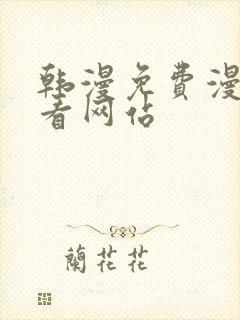 韩漫免费漫
看网站
蘭花花